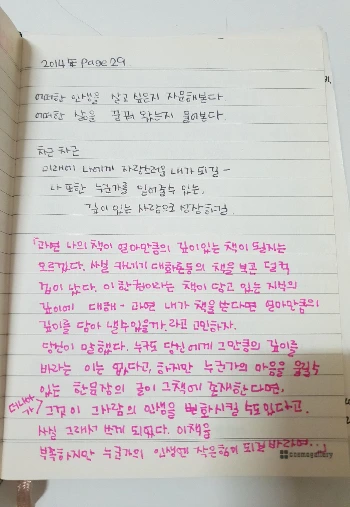 2014年 Page 29.
어떠한 인생을 살고 싶은지 자문해보다.
어떠한 삶을 꿈꿔 왔는지 물어보다.
차근 차근
미래의 나에게 자랑스러운 내가 되길-
나 또한 누군가를 믿어줄 수 있는,
깊이 있는 사람으로 성장하길.
「과연 나의 책이 얼마만큼의 깊이있는 책이 될지는
모르겠다. 사실 카네기 대화론등의 책을 보곤 덜컥
겁이 났다. 이 한권이라는 책이 담고 있는 지식의
깊이에 대해- 과연 내가 책을 쓴다면 얼마만큼의
깊이를 담아 낼수있을까. 라고 고민하자.
당신이 말했다. 누구도 당신에게 그만큼의 깊이를
바라는 이는 없다고, 하지만 누군가의 마음을 움직일수
있는 한문장의 글이 그책에 존재한다면,
그것이 그사람의 인생을 변화시킬 수도있다고.
사실 그래서 쓰게 되었다. 이책을
부족하지만 누군가의 인생에 작은힘이 되길 바라며..」